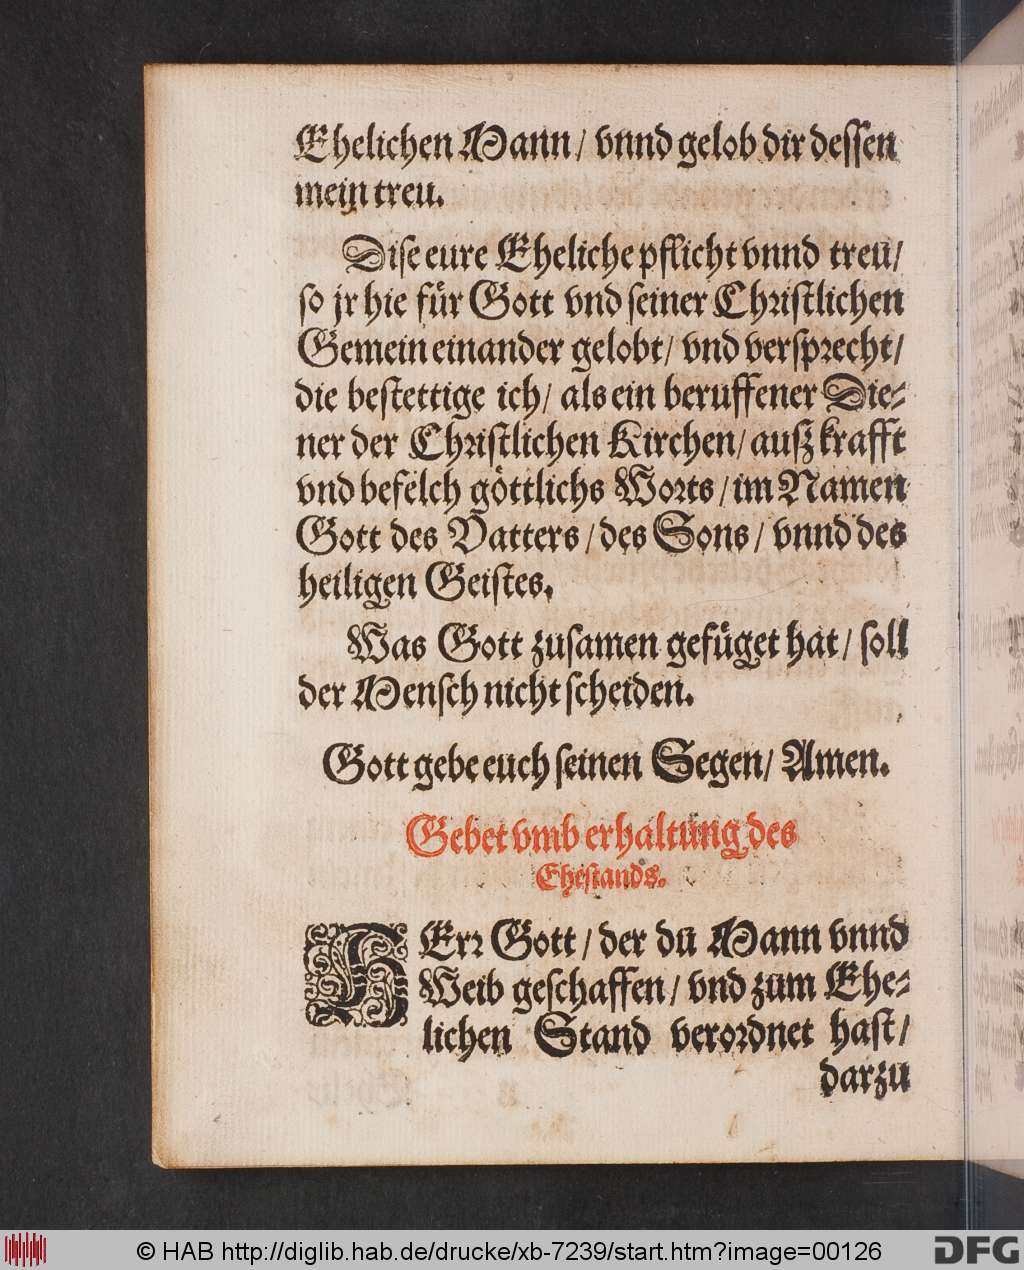 Ehelichen Mann / vnnd gelob dir dessen
mein treu.
Dise eure Eheliche pflicht vnnd treu /
so jr hie für Gott vnd seiner Christlichen
Gemein einander gelobt / vnd versprecht /
die bestettige ich / als ein beruffener Die⸗
ner der Christlichen Kirchen / auß krafft
vnd befelch göttlichs Worts / im Namen
Gott des Vatters / des Sons / vnnd des
heiligen Geistes.
Was Gott zusamen gefüget hat / soll
der Mensch nicht scheiden.
Gott gebe euch seinen Segen / Amen.
Gebet vmb erhaltung des
Ehestands.
HErr Gott / der du Mann vnnd
Weib geschaffen / vnd zum Ehe⸗
lichen Stand verordnet hast /
darzu
© HAB http://diglib.hab.de/drucke/xb-7239/start.htm?image=00126
DFG